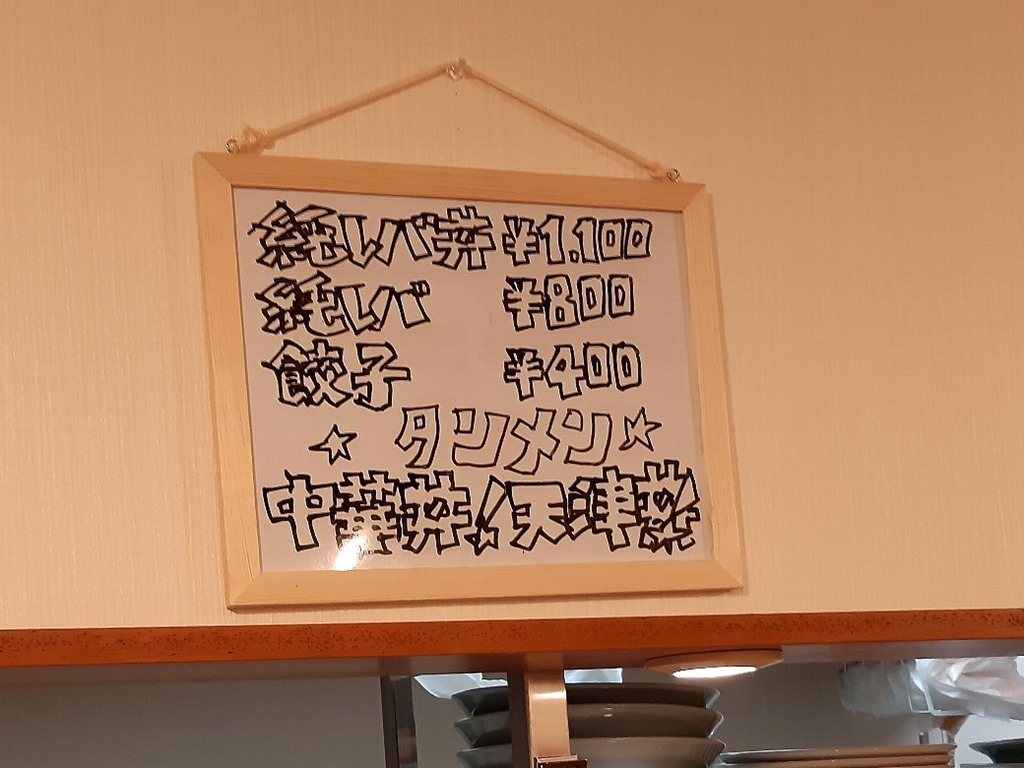 純レバ丼 ¥1.100
純レバ ¥800
餃子 ¥400
☆ タンメン☆
中華丼!天津飯